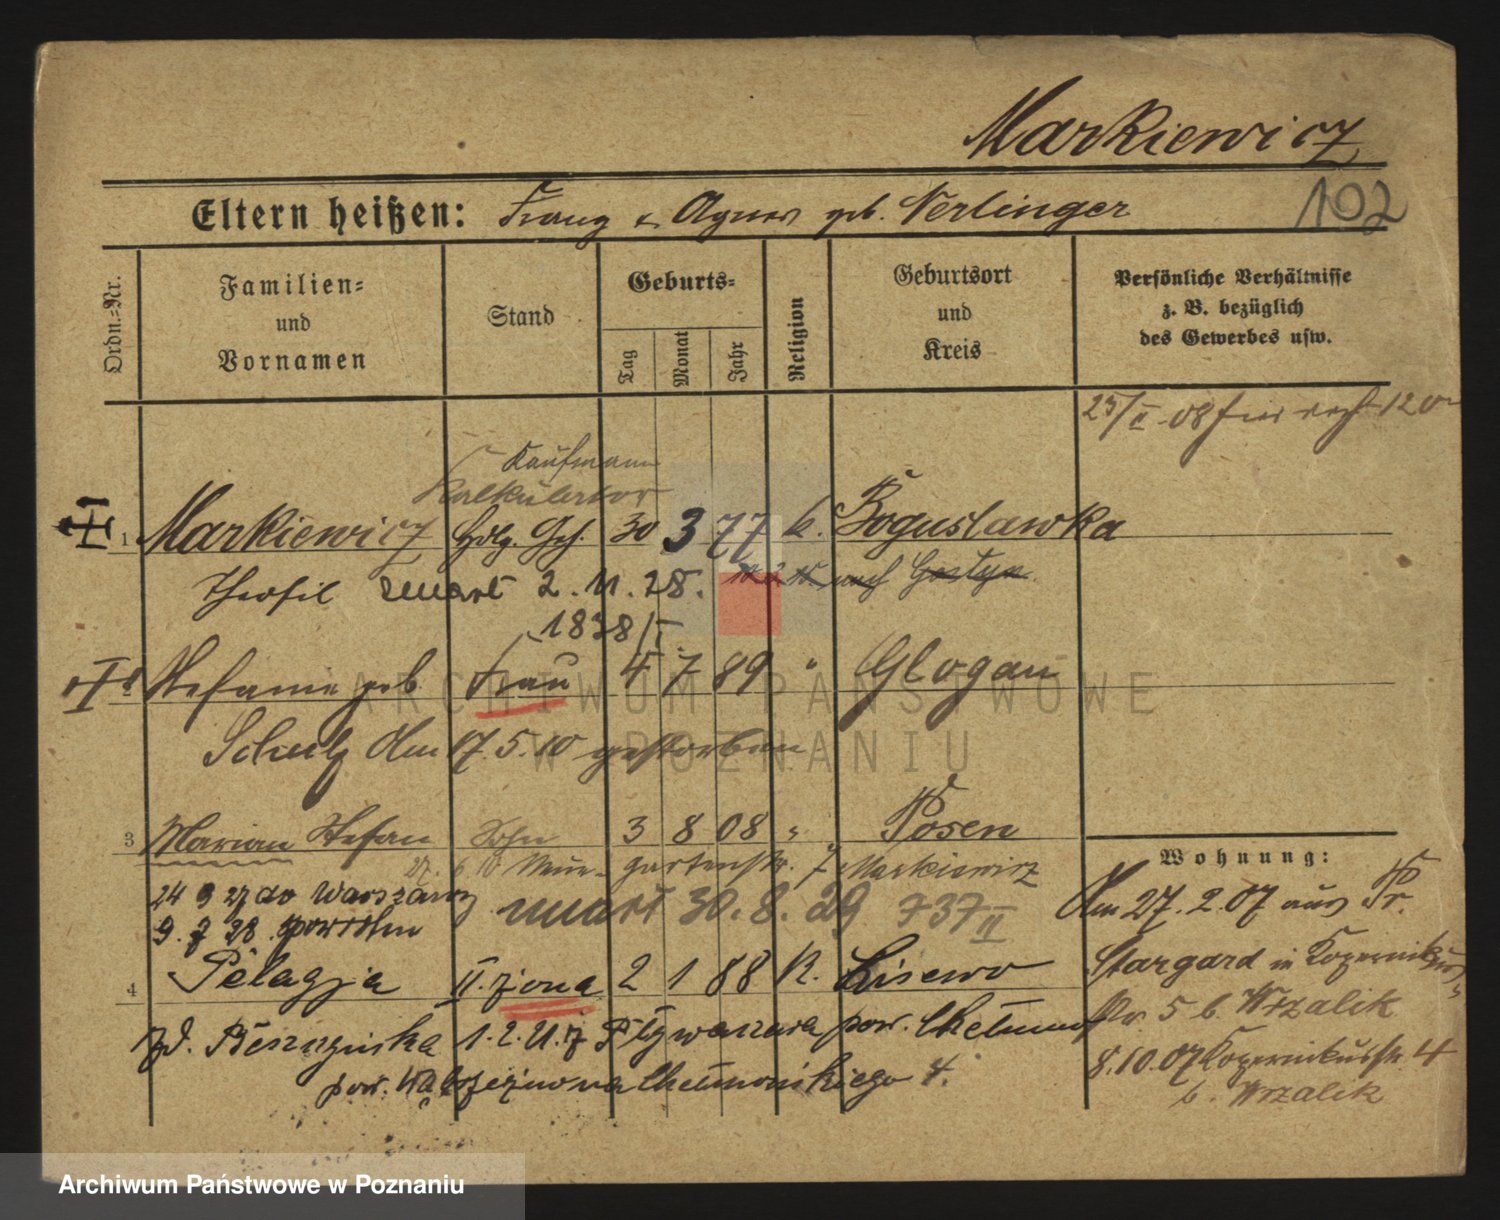 Markiewicz
Eltern heißen: Franz u Agnes geb. Nerlinger
192
Ordn.-Nr.
Familien-
und
Vornamen
Stand
Geburts-
Tag
Monat
Jahr
Religion
Geburtsort
und
Kreis
Persönliche Verhältnisse
z. B. bezüglich
des Gewerbes usw.
23/II 08 120
Kaufmann
Kalkulator
1 Markiewicz Hdlg. Geh. 30 3 77 k. Boguslawka
Theofil zmarł 2. 11. 28. nach Gostyn
1838/I
Stefanie geb. Frau 4 7 89 " Glogau
Schulz Am 17. 5. 10 gestorben
3 Marian Stefan Sohn 3 8 08 " Posen
gartenstr. 7 Markiewicz
24 9 27 do Warszawy
umarł 30. 8. 29 737 II
9. 7 28. powrotem
4 Pelagja II. żona 2 1 88 R. Lisewo
pow. Chełmno
pow. Wąbrzeźno
Wohnung:
Am 27. 2. 07 aus Pr.
Stargard in Kopernikus-
str 5 b. Wrzalik
8. 10. 07 Kopernikusstr. 4
b. Wrzalik
ARCHIWUM PAŃSTWOWE
W POZNANIU
Archiwum Państwowe w Poznaniu